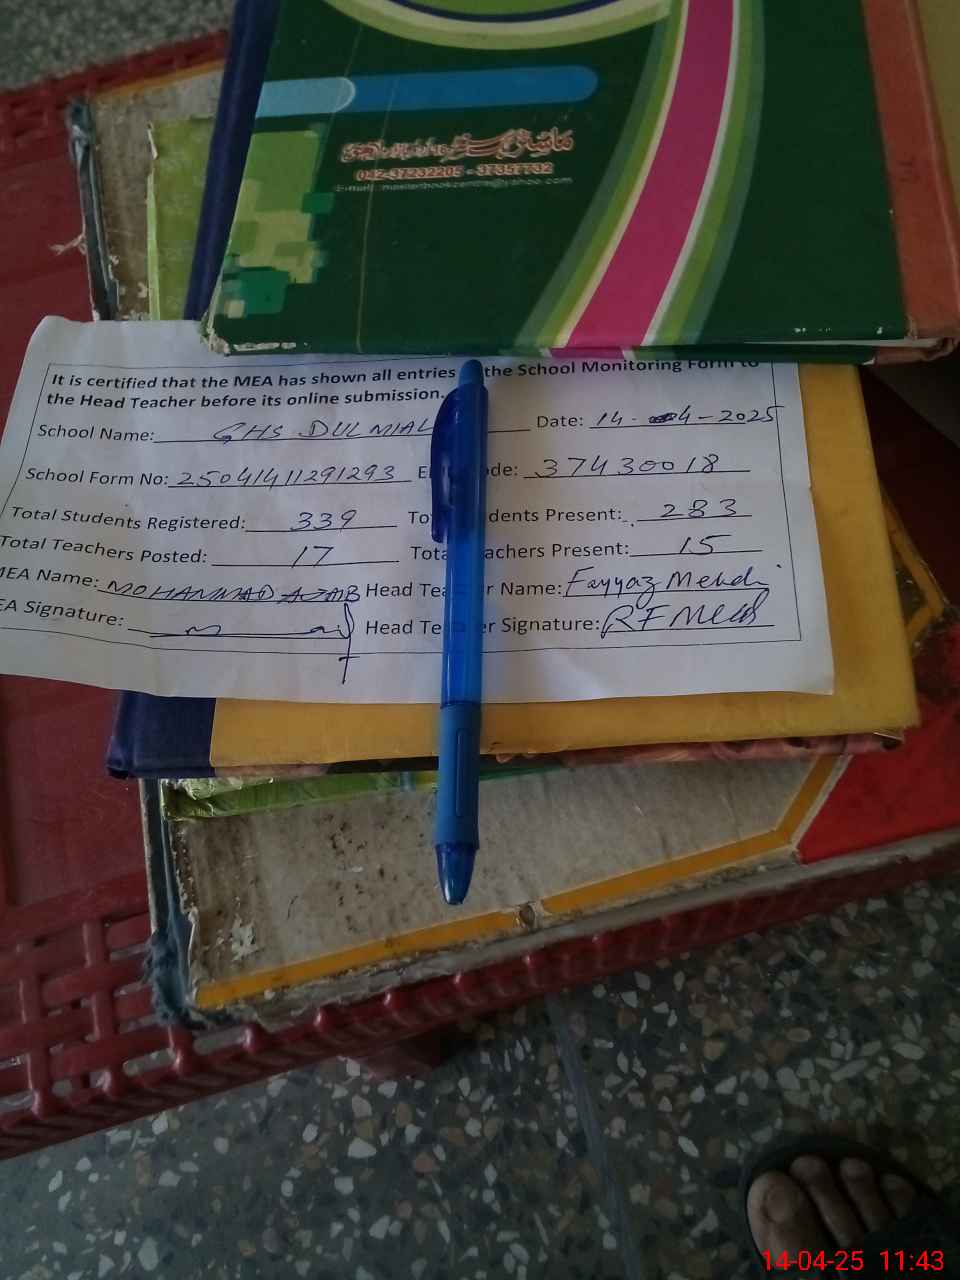 042-37232205 - 37357732
E-mail: masterbookcentre@yahoo.com
It is certified that the MEA has shown all entries the School Monitoring Form to
the Head Teacher before its online submission.
School Name: GHS DULMIAL Date: 14-04-2025
School Form No: 25041411291293 Code: 37430018
Total Students Registered: 339 Students Present: 283
Total Teachers Posted: 17 Total Teachers Present: 15
MEA Name: MOHAMMAD AJAB Head Teacher Name: Fayyaz Mehdi
MEA Signature: Head Teacher Signature:
14-04-25 11:43